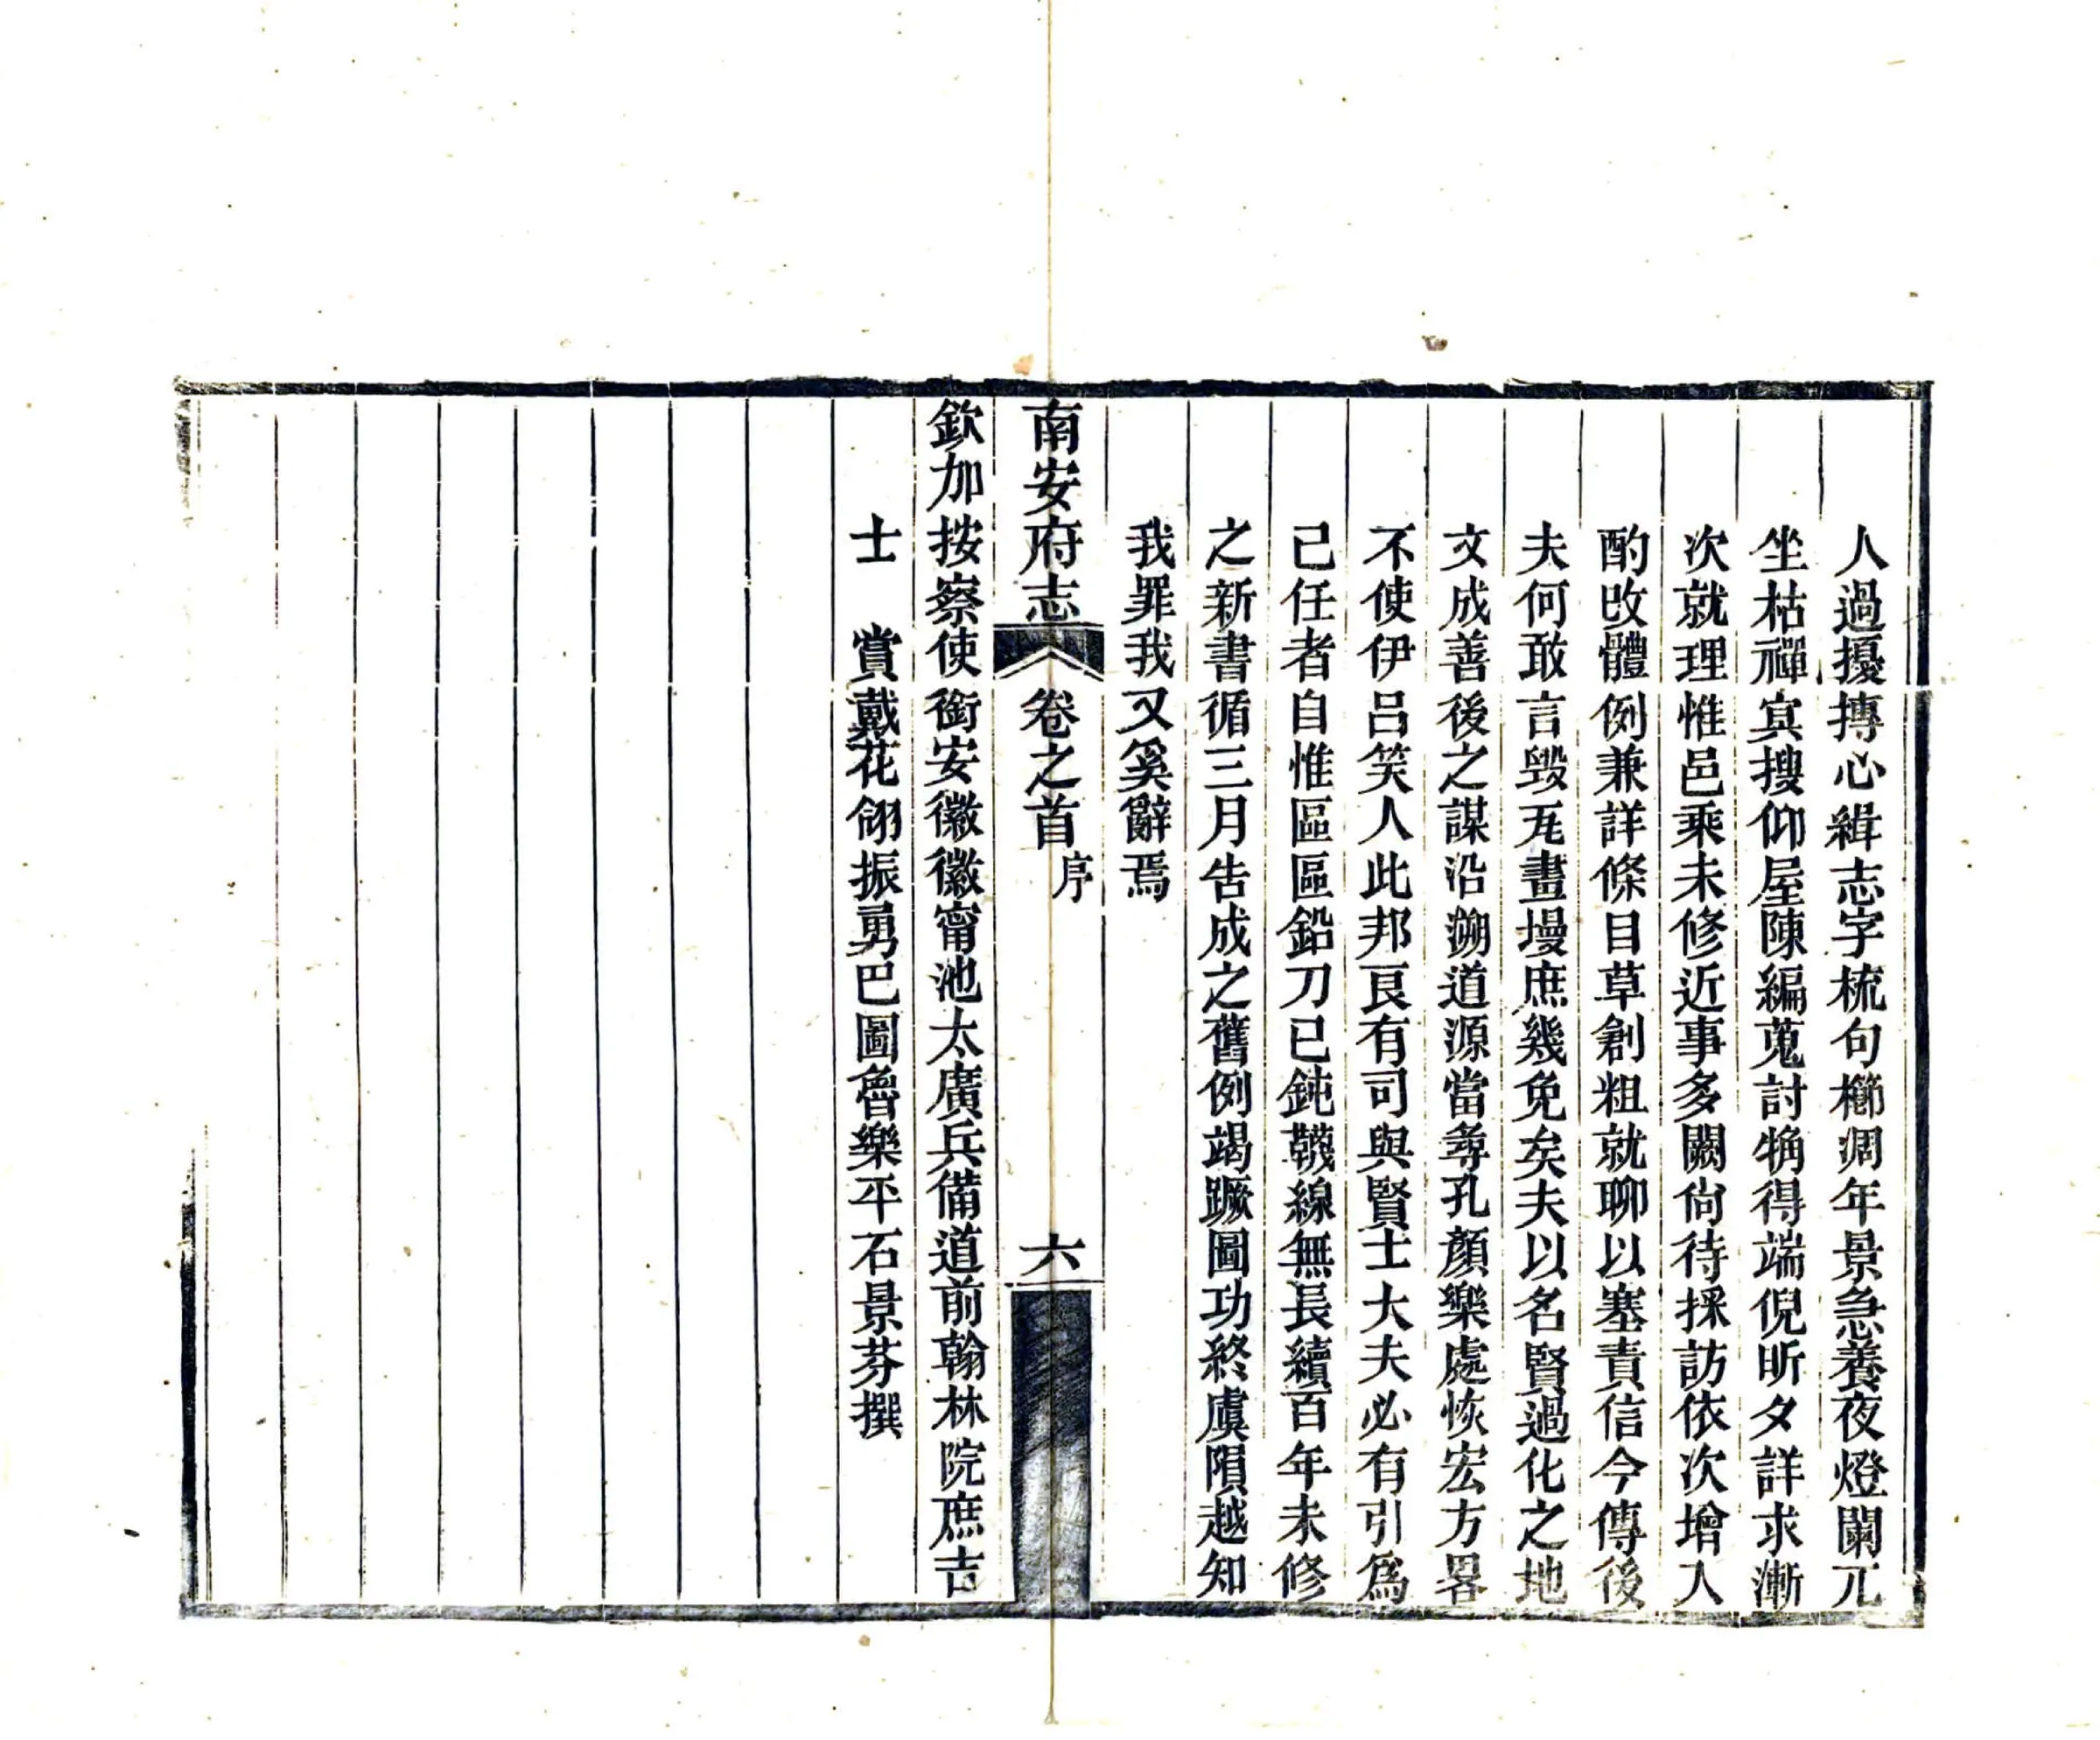 人過擾摶心緝志字梳句櫛凋年景急養夜燈闌兀
坐枯禪㝠搜仰屋陳編蒐討觕得端倪昕夕詳求漸
次就理惟邑乘未修近事多闕尙待採訪依次增入
酌攺體例兼詳條目草創粗就聊以塞責信今傳後
夫何敢言毀瓦畫墁庶幾免矣夫以名賢過化之地
文成善後之謀沿溯道源當尋孔顏樂處恢宏方畧
不使伊呂笑人此邦良有司與賢士大夫必有引爲
己任者自惟區區鉛刀已鈍韈線無長續百年未修
之新書循三月告成之舊例竭蹶圖功終虞隕越知
我罪我又奚辭焉
南安府志 卷之首 序 六
欽加按察使銜安徽徽甯池太廣兵備道前翰林院庶吉
士 賞戴花翎振勇巴圖魯樂平石景芬撰